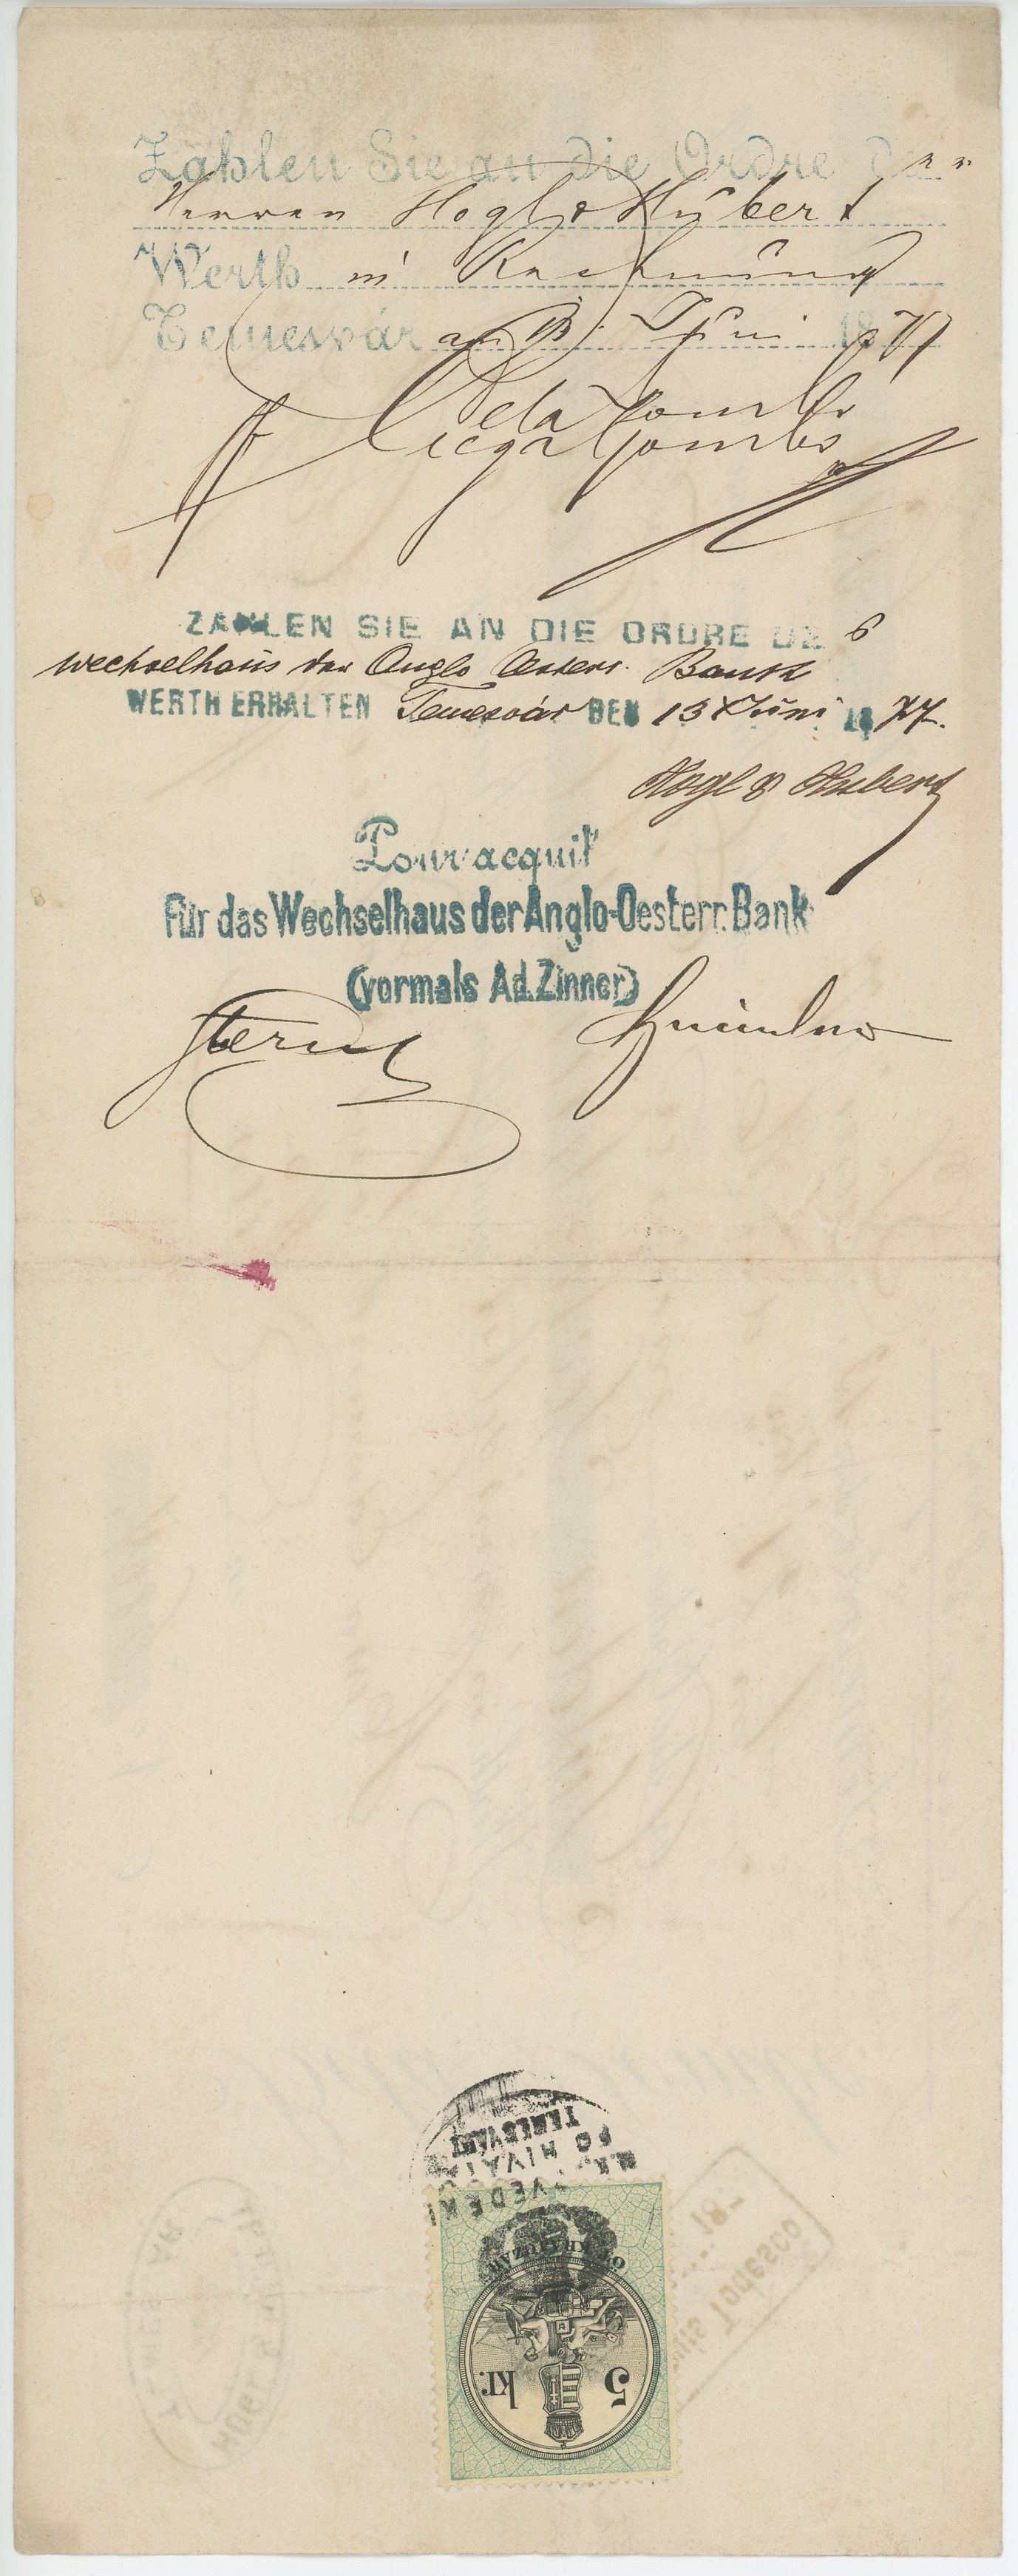 Zahlen Sie an die Ordre der
Herren Hogl & Hubert
Werth in Rechnung
Temesvár am 13. Juni 1877
ZAHLEN SIE AN DIE ORDRE DES
Wechselhaus der Anglo Oesterr. Bank
WERTH ERHALTEN Temesvár DEN 13 Juni 1877.
Hogl & Hubert
Pour acquit
Für das Wechselhaus der Anglo-Oesterr. Bank
(vormals Ad. Zinner)
TEMESVÁRT
ÖT KRAJCZÁR
5 kr.